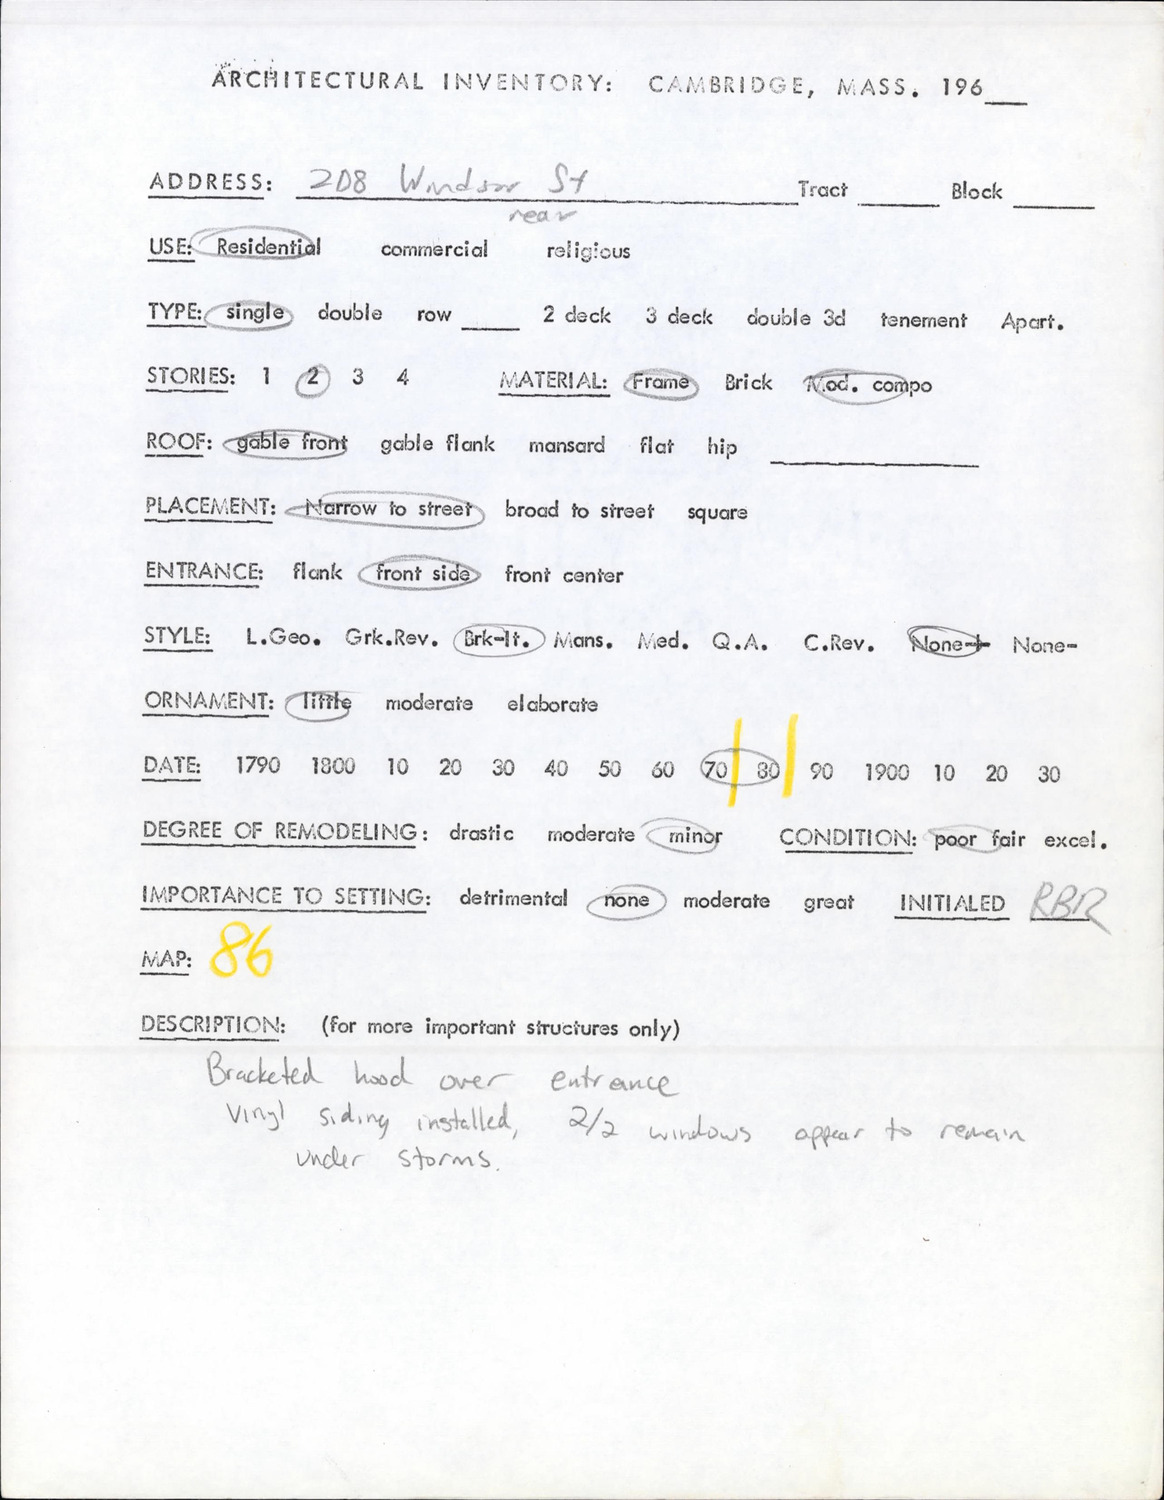 ARCHITECTURAL INVENTORY: CAMBRIDGE, MASS. 196___
ADDRESS: 208 Windsor St Tract ___ Block ___
rear
USE: Residential commercial religious
TYPE: single double row ___ 2 deck 3 deck double 3d tenement Apart.
STORIES: 1 2 3 4 MATERIAL: Frame Brick Mod. compo
ROOF: gable front gable flank mansard flat hip ___
PLACEMENT: Narrow to street broad to street square
ENTRANCE: flank front side front center
STYLE: L.Geo. Grk.Rev. Brk-It. Mans. Med. Q.A. C.Rev. None+ None-
ORNAMENT: little moderate elaborate
DATE: 1790 1800 10 20 30 40 50 60 70 80 90 1900 10 20 30
DEGREE OF REMODELING: drastic moderate minor CONDITION: poor fair excel.
IMPORTANCE TO SETTING: detrimental none moderate great INITIALED RBR
MAP: 86
DESCRIPTION: (for more important structures only)
Bracketed hood over entrance
Vinyl siding installed, 2/2 windows appear to remain
under storms.